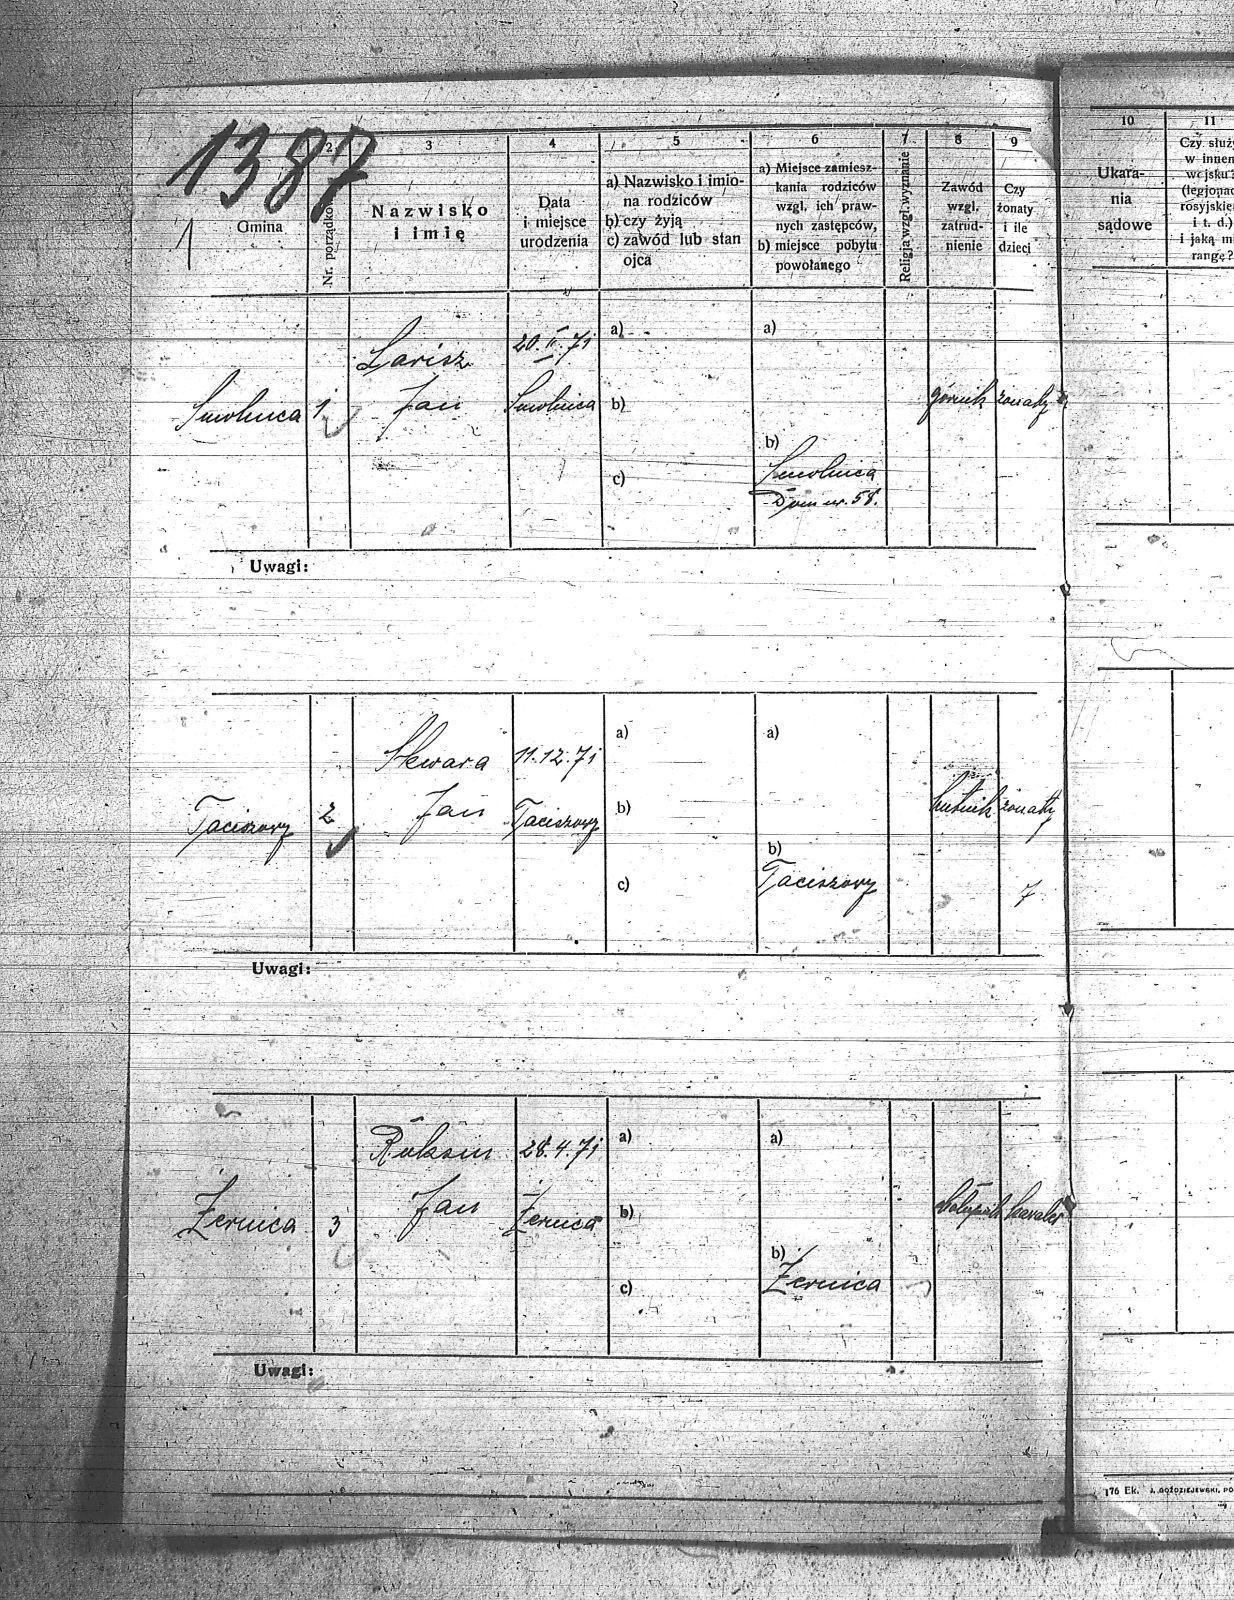 1387
1
Gmina
2
Nr. porządko
3
Nazwisko
i imię
4
Data
i miejsce
urodzenia
5
a) Nazwisko i imio-
na rodziców
b) czy żyją
c) zawód lub stan
ojca
6
a) Miejsce zamiesz-
kania rodziców
wzgl. ich praw-
nych zastępców,
b) miejsce pobytu
powołanego
7
Religja wzgl. wyznanie
8
Zawód
wzgl.
zatrud-
nienie
9
Czy
żonaty
i ile
dzieci
10
Ukara-
nia
sądowe
11
Czy służy
w innem
wojsku?
(legjonac
rosyjskie
i t. d.)
i jaką mi
rangę?
Smolnica
1
Larisz
Jan
20.II.71
Smolnica
a)
b)
c)
a)
b)
Smolnica
Dom nr. 58.
górnik
żonaty
Uwagi:
Taciszowy
2
Skwara
Jan
11.12.71
Taciszowy
a)
b)
c)
a)
b)
Taciszowy
hutnik
żonaty
7
Uwagi:
Żernica
3
Jan
28.4.71
Żernica
a)
b)
c)
a)
b)
Żernica
kawaler
Uwagi:
176 Ek. J. GOŹDZIEJEWSKI, PO